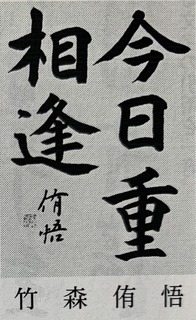 今日重
相逢
侑悟
竹森侑悟